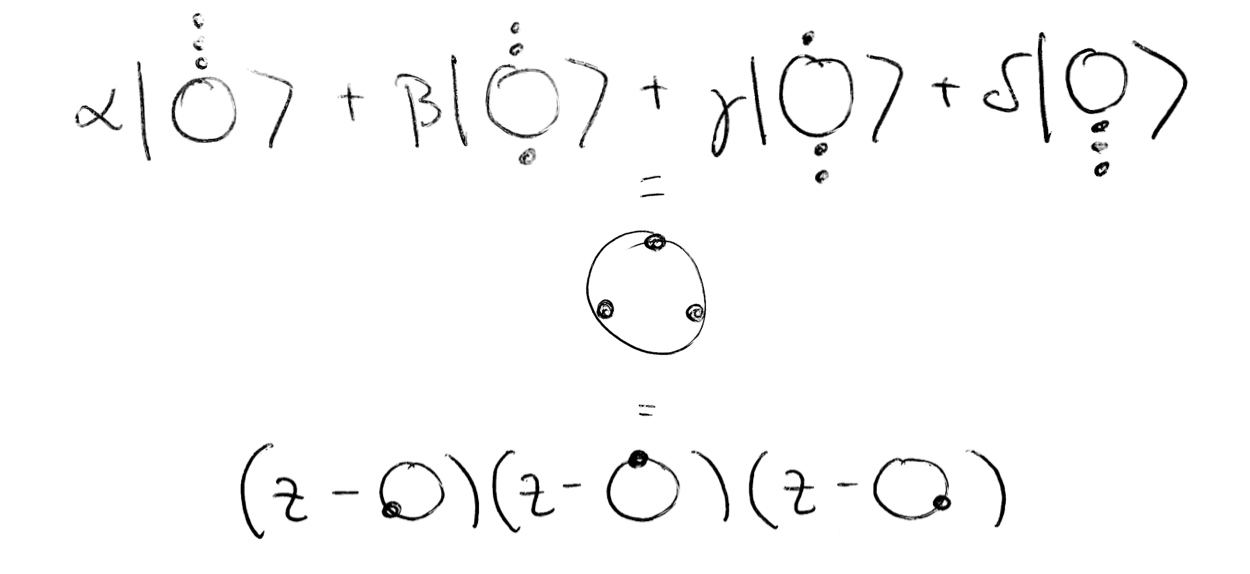 α| ⟩ + β| ⟩ + γ| ⟩ + δ| ⟩
=
=
(z - )(z - )(z - )